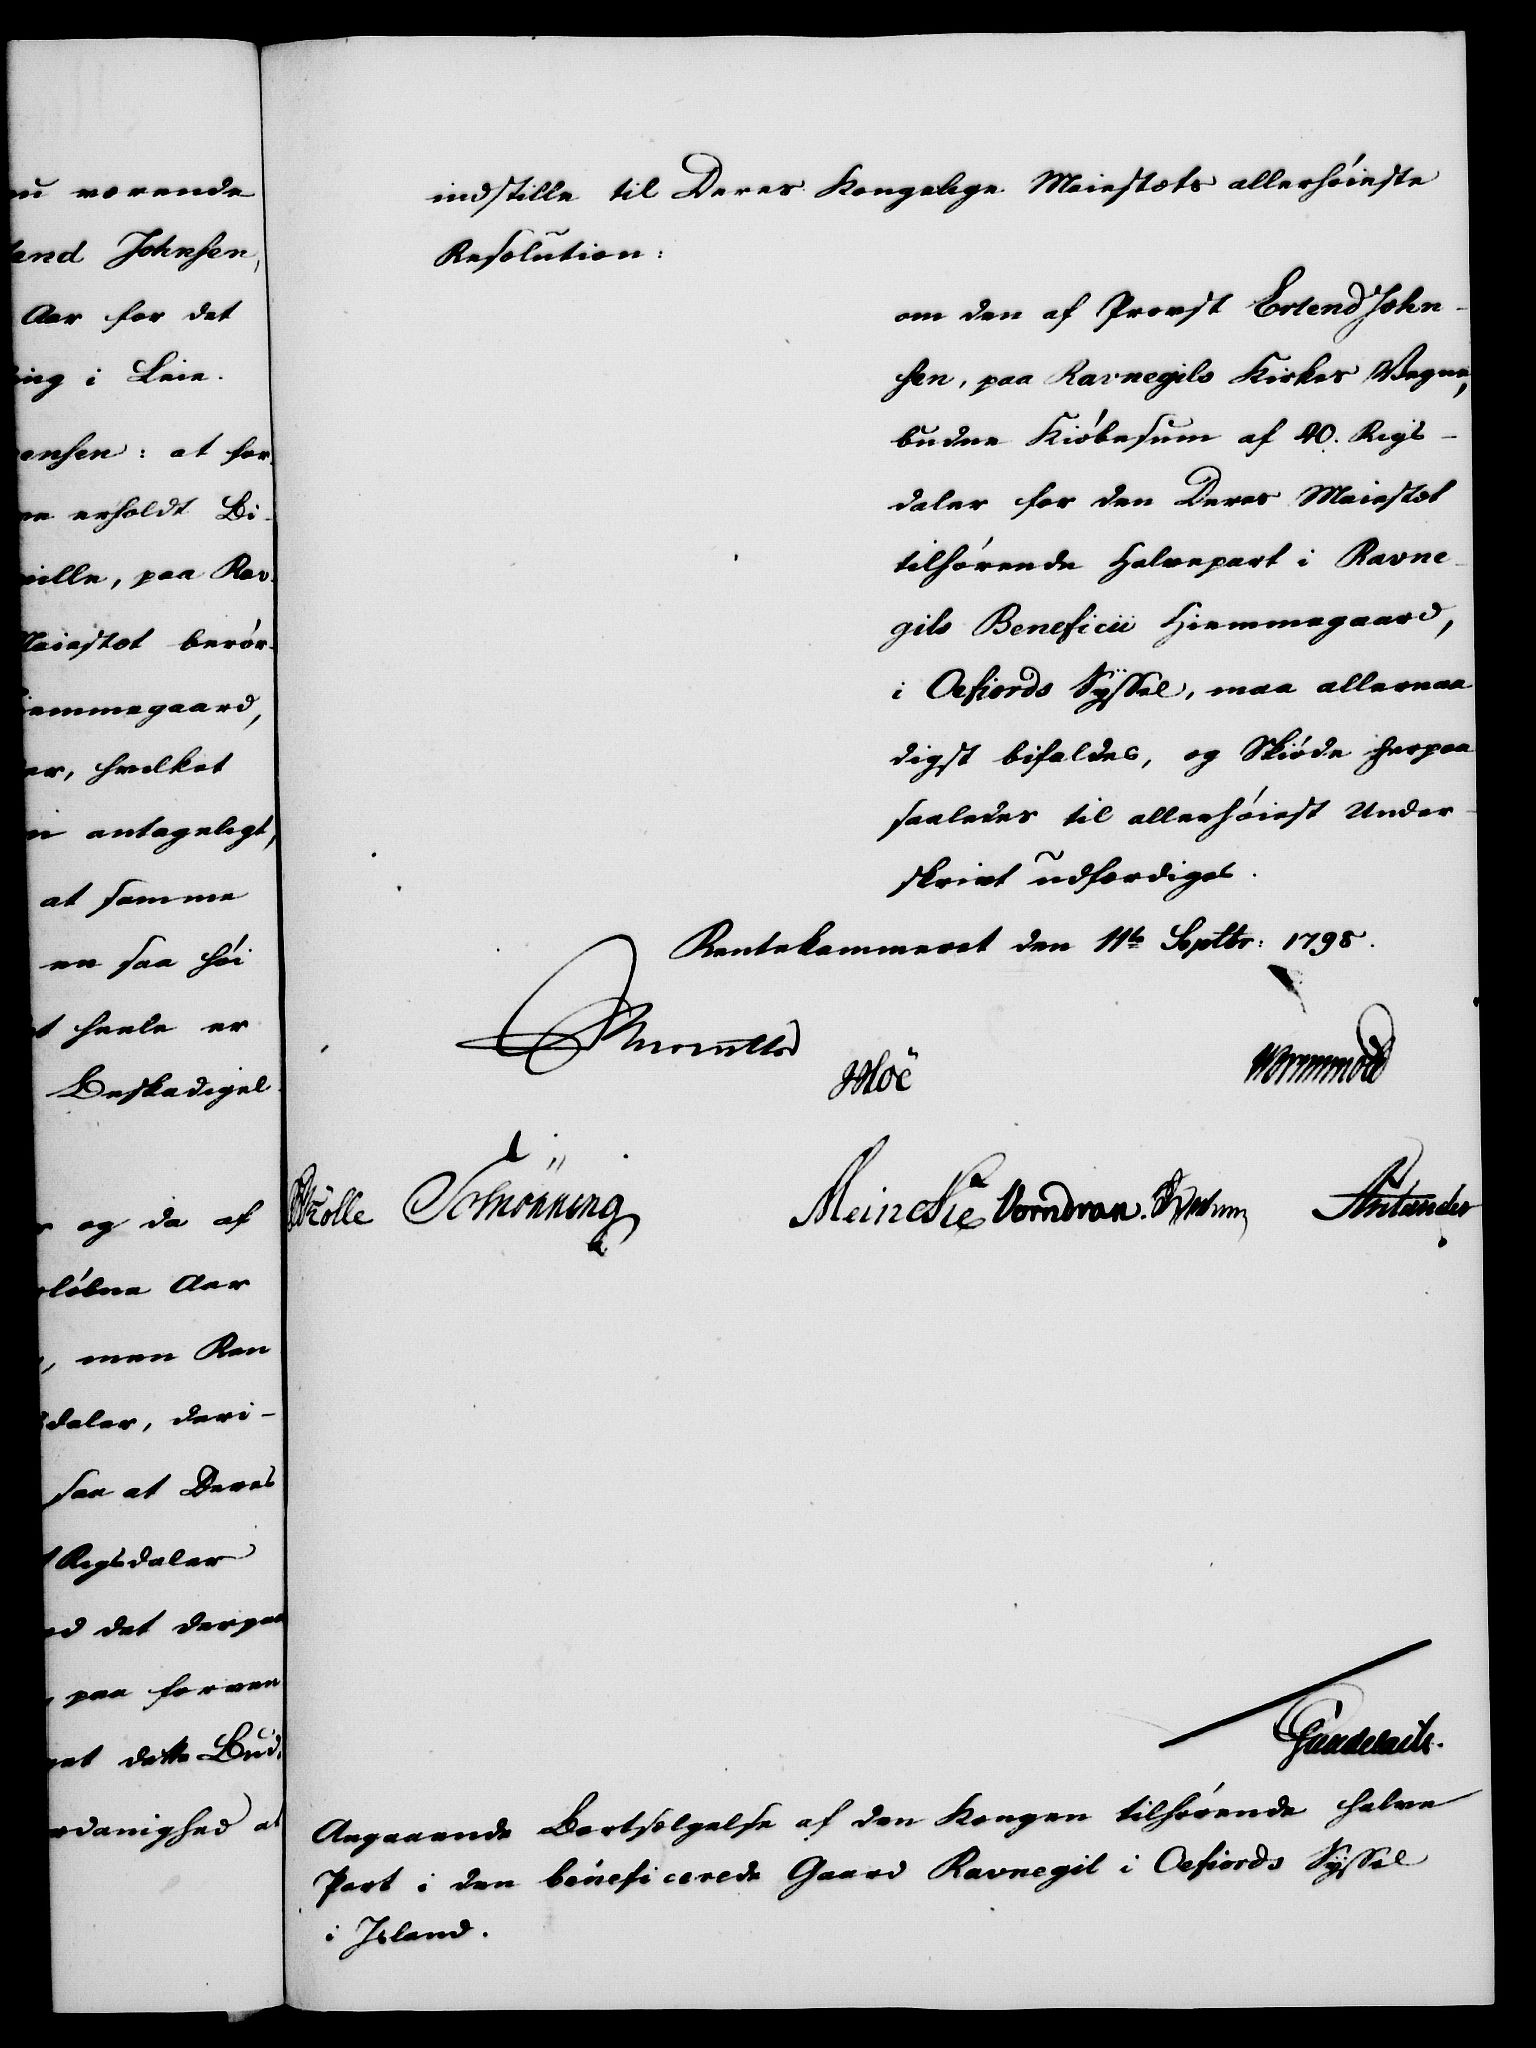 nu værende
land Johnsen,
Aar for det
ing i Leie.
ensen: at for
erholdt Bi-
ville, paa Rav-
Maiestæt berör-
iemmegaard,
er, hvilket
antageligt,
at samme
en saa höi
t heele er
Beskadigel-
og da af
löbne Aar
, men Ren
daler, deri-
saa at Deres
Rigsdaler
ed det derpaa
paa forven
et dette Bud,
rdanighed at
indstille til Deres Kongelige Maiestæts allerhöieste
Resolution:
om den af Provst Erlend John-
sen, paa Ravnegils Kirkes Vegne,
budne Kiöbesum af 40. Rigs-
daler for den Deres Maiestæt
tilhörende Halvepart i Ravne-
gils Beneficii Hiemmegaard,
i Oefiords Syssel, maa allernaa
digst bifaldes, og Skiöde herpaa
saaledes til allerhöiest Under-
skrivt udfærdiges.
Rentekammeret den 11te Septbr: 1798.
Wormskiold
Krolle Schönning Meincke Vorndran.
Angaaende Bortsælgelse af den Kongen tilhörende halve
Part i den beneficerede Gaard Ravnegil i Oefiords Syssel
i Island.